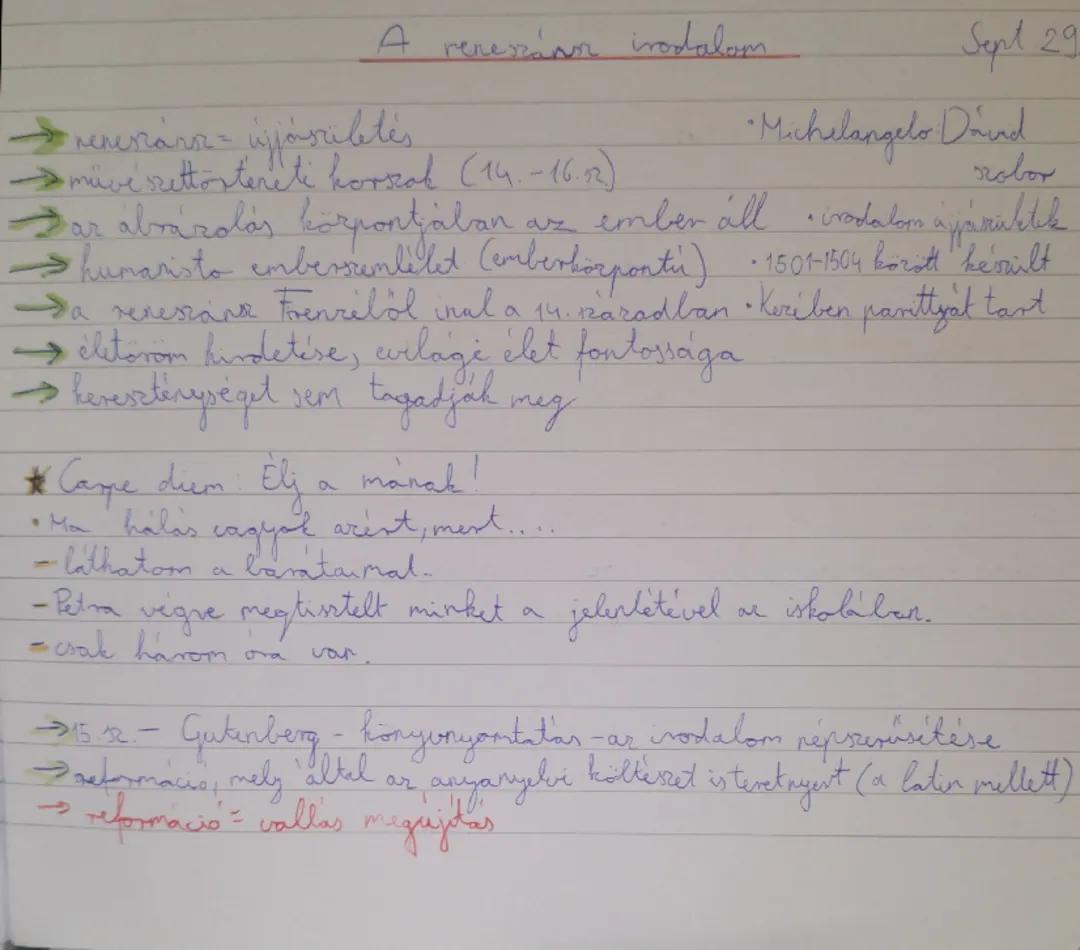 A reneszánsz irodalom Sept 29
→ reneszánsz = újjászületés • Michelangelo Dávid
→ művészettörténeti korszak (14.-16.sz) szobor
→ az ábrázolás központjában az ember áll • irodalom újjászületek
→ humanista emberszemlélet (emberközpontú) • 1501-1504 között készült
→ a reneszánsz Firenzéből indul a 14. században • Kezében parittyát tart
→ életöröm hirdetése, evilági élet fontossága
→ kereszténységet sem tagadják meg
★ Carpe diem: Élj a mának!
• Ma hálás vagyok azért, mert....
- láthatom a barátaimat.
- Petra végre megtisztelt minket a jelenlétével az iskolában.
- csak három óra van.
→ 15.sz. - Gutenberg - könyvnyomtatás - az irodalom népszerűsítése
→ reformáció, mely által az anyanyelvi költészet is teret nyert (a latin mellett)
→ reformáció = vallás megújítás